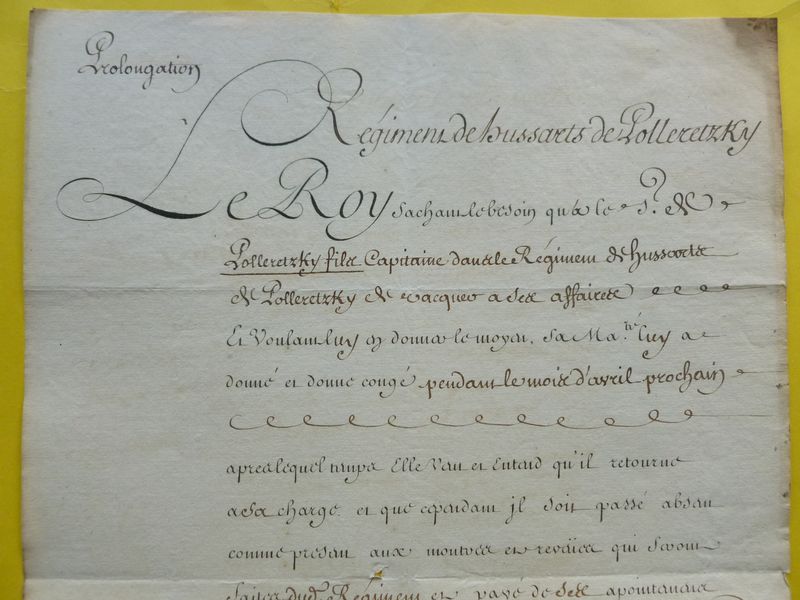 Prolongation
Régiment de hussarts de Polleretzky
Le Roy sachant le besoin qu'a le Sr. de
Polleretzky fils Capitaine dans le Régiment de hussarts
de Polleretzky de vacquer a ses affaires
Et Voulant luy en donner le moyen, sa Ma.té luy a
donné et donne congé pendant le mois d'avril prochain
apres lequel temps Elle Veut et Entend qu'il retourne
a sa charge et que cependant jl soit passé absent
comme present aux montres et reveües qui seront
faites dud. Régiment et payé de ses apointemens